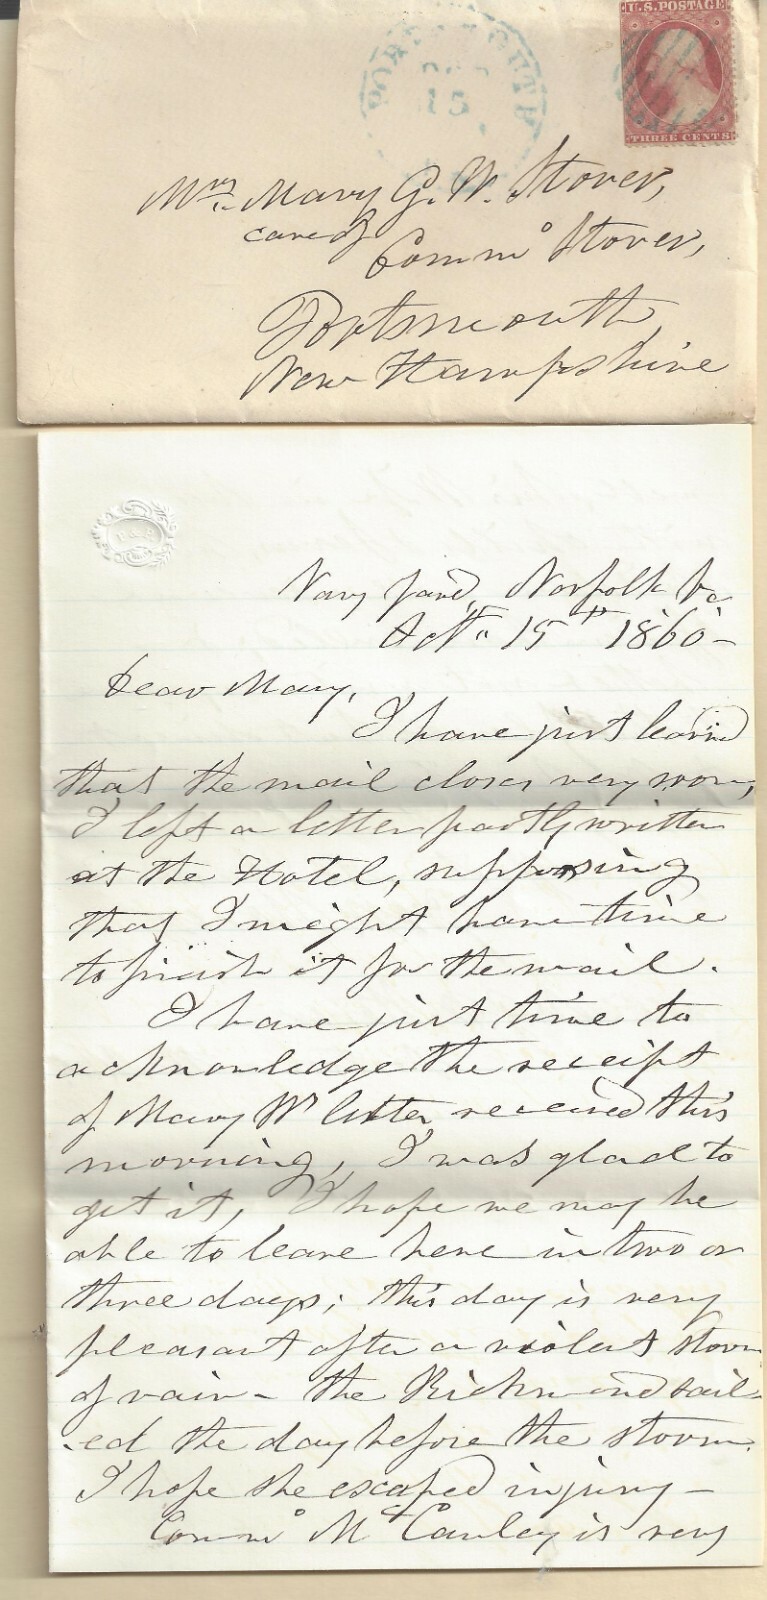 U.S. POSTAGE
THREE CENTS
PORTSMOUTH
OCT
15
Mrs. Mary G. W. Storer,
care of
Commo Storer,
Portsmouth,
New Hampshire
Navy Yard, Norfolk Va
Oct. 15th 1860 -
Dear Mary,
I have just learnd
that the mail closes very soon,
I left a letter partly written
at the Hotel, supposing
that I might have time
to finish it for the mail.
I have just time to
acknowledge the receipt
of Mary Ws letter received this
morning, I was glad to
get it, I hope we may be
able to leave here in two or
three days; this day is very
pleasant after a violent storm
of rain - the Richmond sail-
-ed the day before the storm.
I hope she escaped injury -
Commo McCauley is very